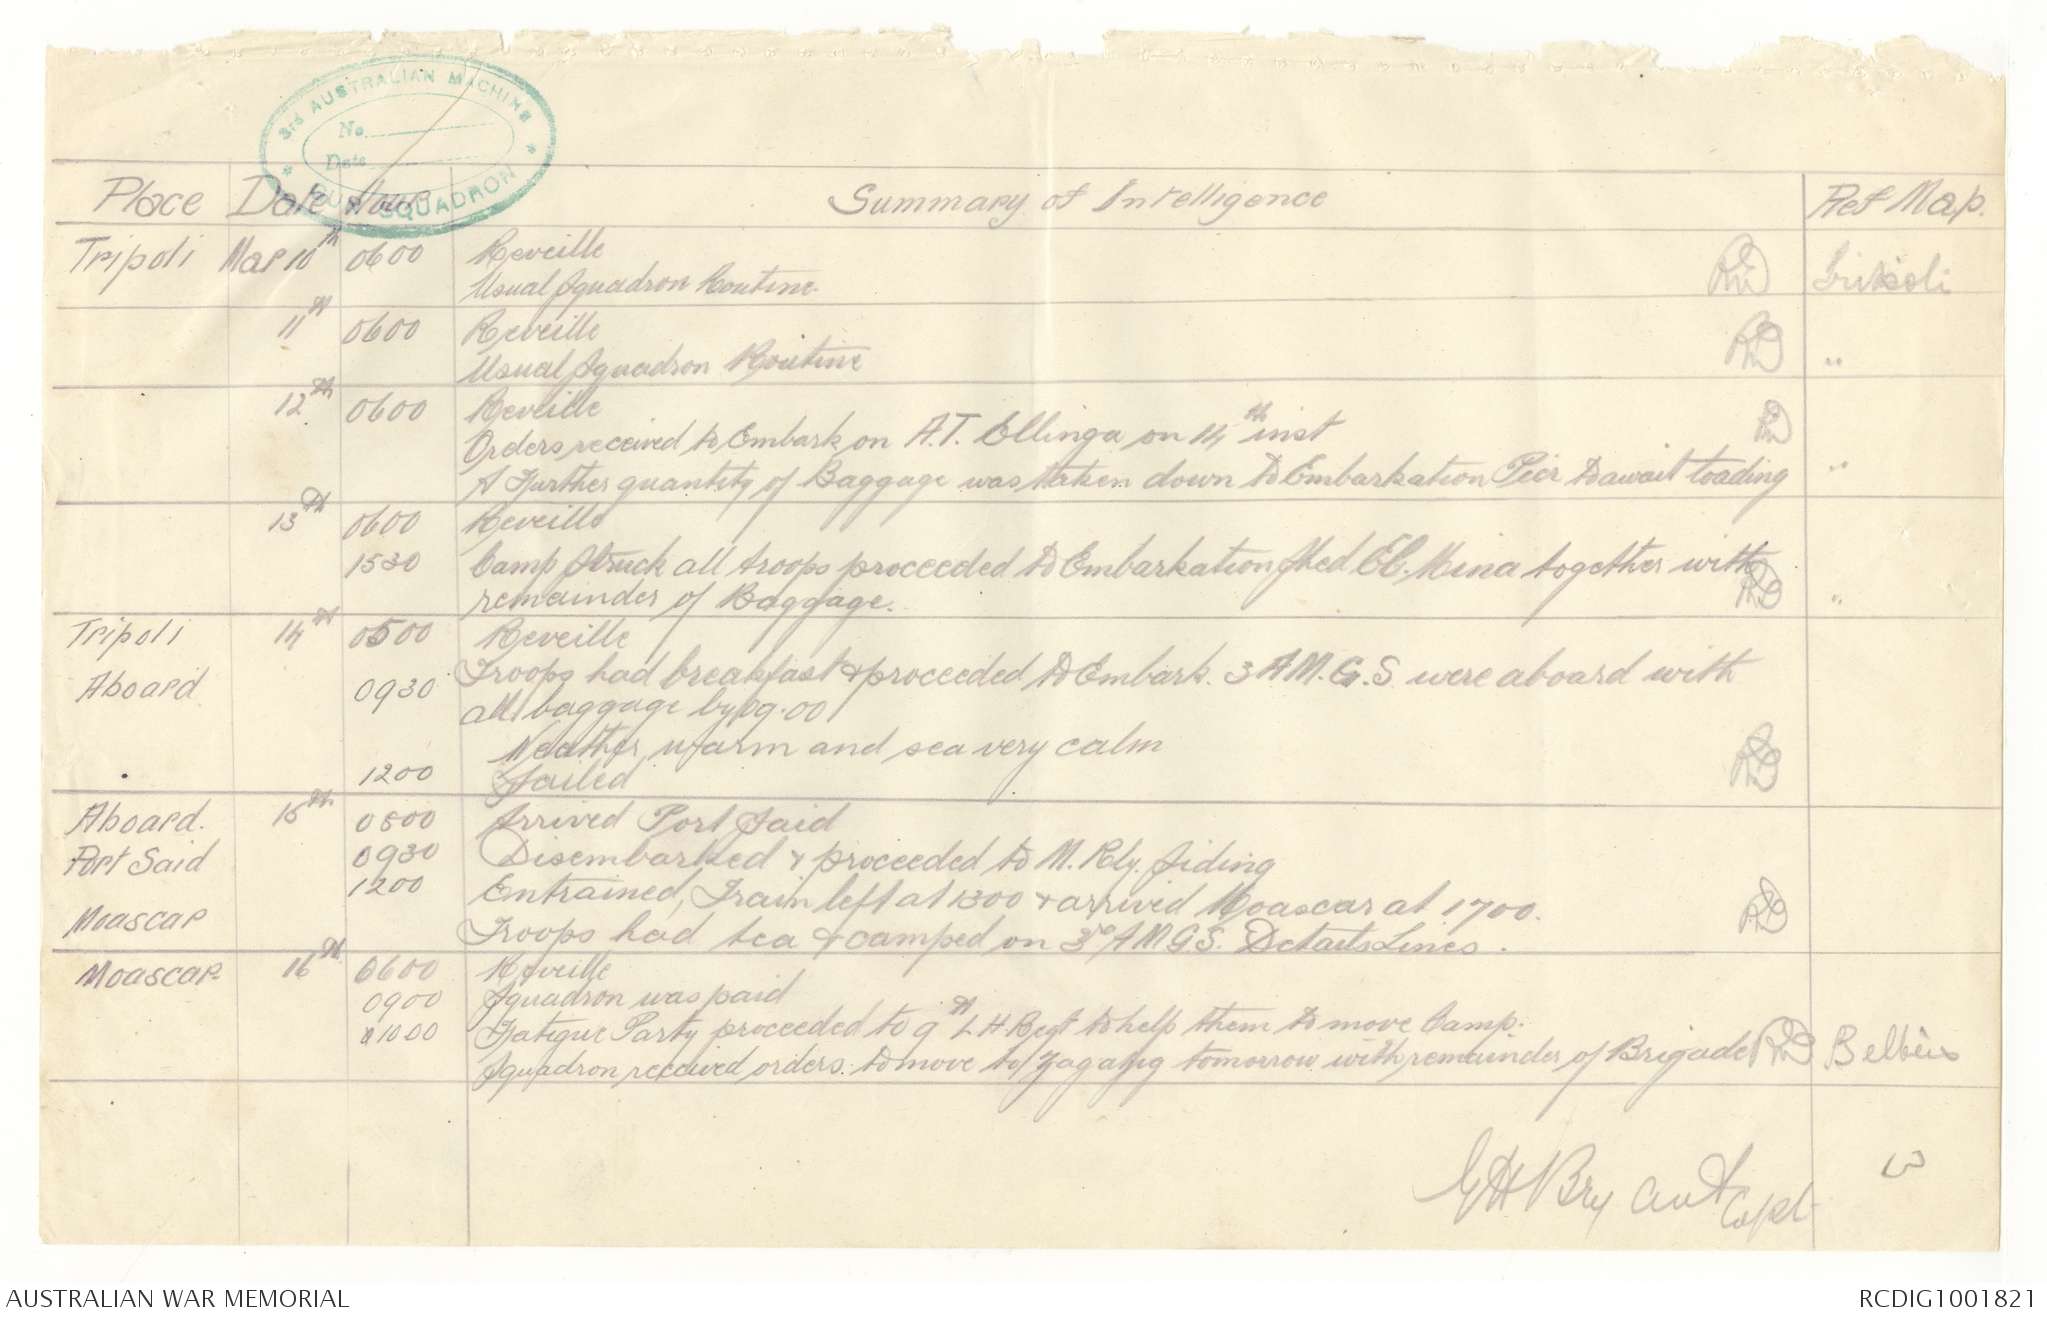 3rd AUSTRALIAN MACHINE
No.
Date
GUN SQUADRON
Place Date Hour Summary of Intelligence Ref Map.
Tripoli Mar 10th 0600 Reveille
Usual Squadron Routine.
11th 0600 Reveille
Usual Squadron Routine "
12th 0600 Reveille
Orders received to Embark on A.T. Ellinga on 14th inst
A Further quantity of Baggage was taken down to Embarkation Pier to await loading "
13th 0600 Reveille
1530 Camp Struck all troops proceeded to Embarkation Shed El. Mina together with
remainder of Baggage. "
Tripoli 14th 0500 Reveille
Aboard 0930 Troops had breakfast & proceeded to Embark. 3 A.M.G.S were aboard with
all baggage by 09.00
Weather warm and sea very calm
1200 Sailed
Aboard. 15th 0800 Arrived Port Said
Port Said 0930 Disembarked & proceeded to M. Rly. Siding
1200 Entrained, Train left at 1300 & arrived Moascar at 1700.
Moascar Troops had tea & camped on 3rd A M G S. Details Lines.
Moascar 16th 0600 Reveille
0900 Squadron was paid
1000 Fatigue Party proceeded to 9th L H Regt to help them to move Camp.
Squadron received orders to move to Zagazig tomorrow with remainder of Brigade Belbeis
G H Bryant Capt
3
AUSTRALIAN WAR MEMORIAL RCDIG1001821